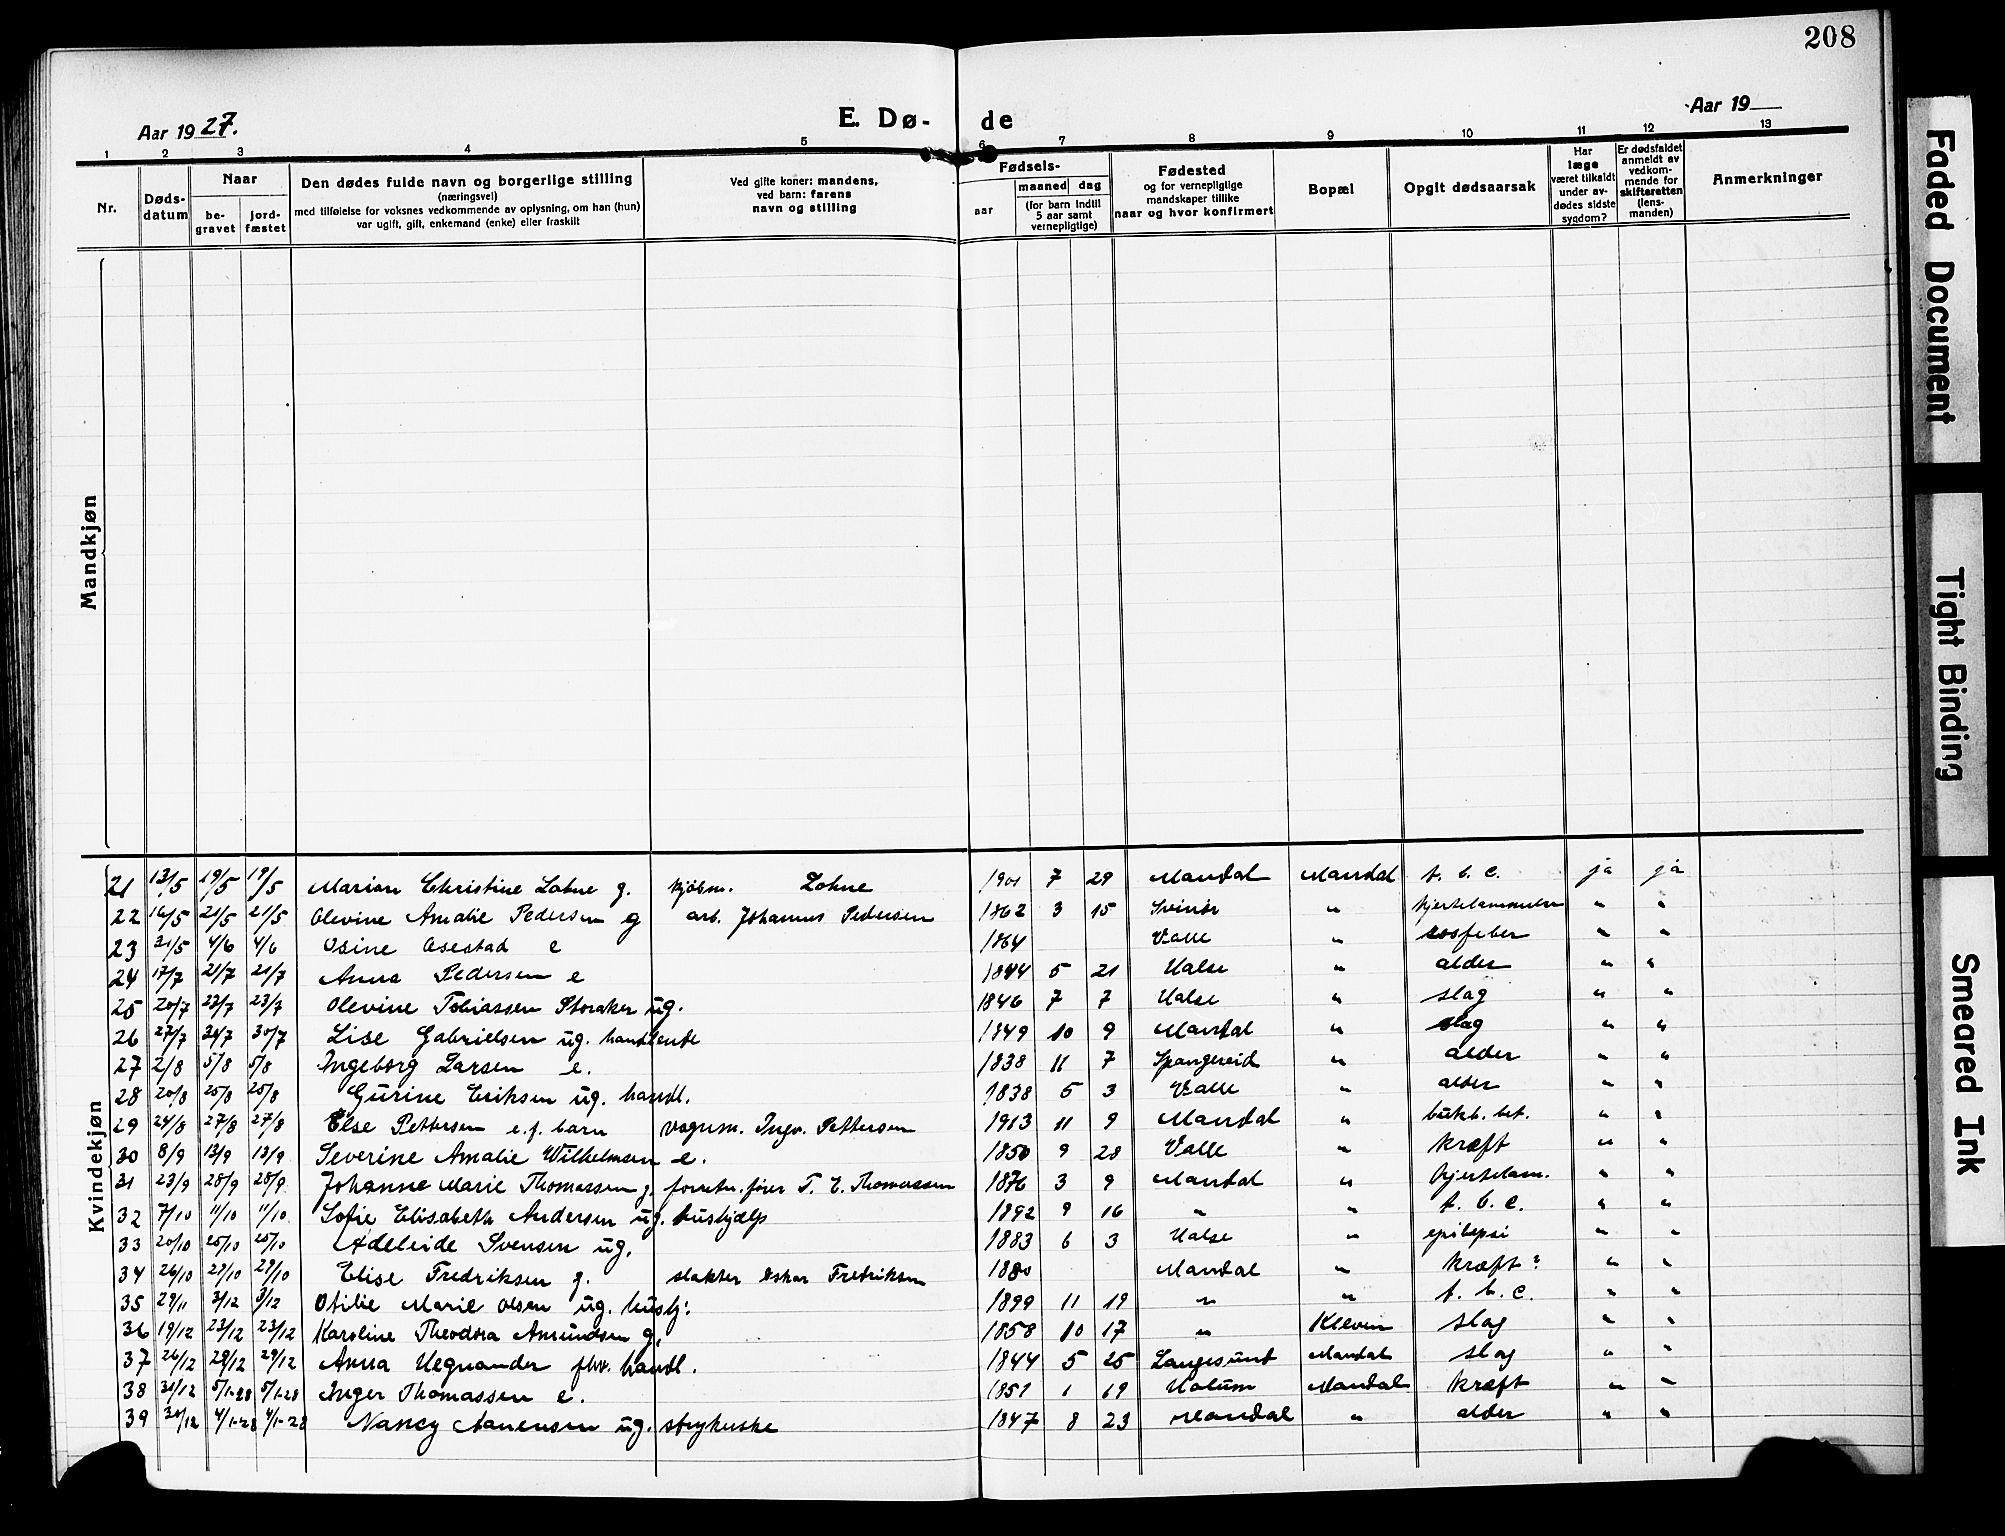 208
Aar 1927.
E. Dø- de
Aar 19
1 2 3 4 5 6 7 8 9 10 11 12 13
Nr.
Døds-datum
Naar
be-gravet
jord-fæstet
Den dødes fulde navn og borgerlige stilling
(næringsvei)
med tilføielse for voksnes vedkommende av oplysning, om han (hun)
var ugift, gift, enkemand (enke) eller fraskilt
Ved gifte koner: mandens,
ved barn: farens
navn og stilling
Fødsels-
aar
maaned dag
(for barn indtil
5 aar samt
vernepligtige)
Fødested
og for vernepligtige
mandskaper tillike
naar og hvor konfirmert
Bopæl
Opgit dødsaarsak
Har
læge
været tilkaldt
under av-
dødes sidste
sygdom?
Er dødsfaldet
anmeldt av
vedkom-
mende for
skifteretten
(lens-
manden)
Anmerkninger
Mandkjøn
Kvindekjøn
21 13/5 19/5 19/5 Marian Christine Lohne g. kjøbm. Lohne 1901 7 29 Mandal Mandal t. b. c. ja ja
22 16/5 21/5 21/5 Olevine Amalie Pedersen g arb. Johannes Pedersen 1862 3 15 Svinør " hjertelammelse " "
23 31/5 4/6 4/6 Osine Osestad e 1864 Valle " " "
24 17/7 21/7 21/7 Anna Pedersen e 1844 5 21 Halse " alder " "
25 20/7 23/7 23/7 Olevine Tobiassen Storaker ug. 1846 7 7 Halse " slag " "
26 27/7 30/7 30/7 Lise Gabrielsen ug. handlende 1849 10 9 Mandal " slag " "
27 2/8 5/8 5/8 Ingeborg Larsen e. 1838 11 7 Spangereid " alder " "
28 20/8 25/8 25/8 Gurine Eriksen ug. handl. 1838 5 3 Valle " alder " "
29 24/8 27/8 27/8 Else Pettersen e.f. barn vognm. Ingv. Pettersen 1913 11 9 Mandal " bukh. bet. " "
30 8/9 13/9 13/9 Severine Amalie Wilhelmsen e. 1850 9 28 Valle " kræft " "
31 23/9 28/9 28/9 Johanne Marie Thomassen g. forretn.fører T. E. Thomassen 1876 3 9 Mandal " hjertelam. " "
32 7/10 11/10 11/10 Sofie Elisabeth Andersen ug. hushjælp 1892 9 16 " " t. b. c. " "
33 20/10 25/10 25/10 Adeleide Svensen ug. 1883 6 3 Halse " epilepsi " "
34 26/10 29/10 29/10 Elise Fredriksen g. slakter Oskar Fredriksen 1880 Mandal " kræft? " "
35 29/11 3/12 3/12 Otilie Marie Olsen ug. hushj. 1899 11 19 " " t. b. c. " "
36 19/12 23/12 23/12 Karoline Theodora Amundsen g. 1858 10 17 " Kleven slag " "
37 26/12 29/12 29/12 Anna Wegnander fhv. handl. 1844 5 25 Langesund Mandal slag " "
38 30/12 5/1-28 5/1-28 Inger Thomassen e. 1851 1 19 Holum Mandal kræft " "
39 30/12 4/1-28 4/1-28 Nancy Aanensen ug. strykerske 1847 8 23 Mandal " alder " "
Faded Document
Tight Binding
Smeared Ink